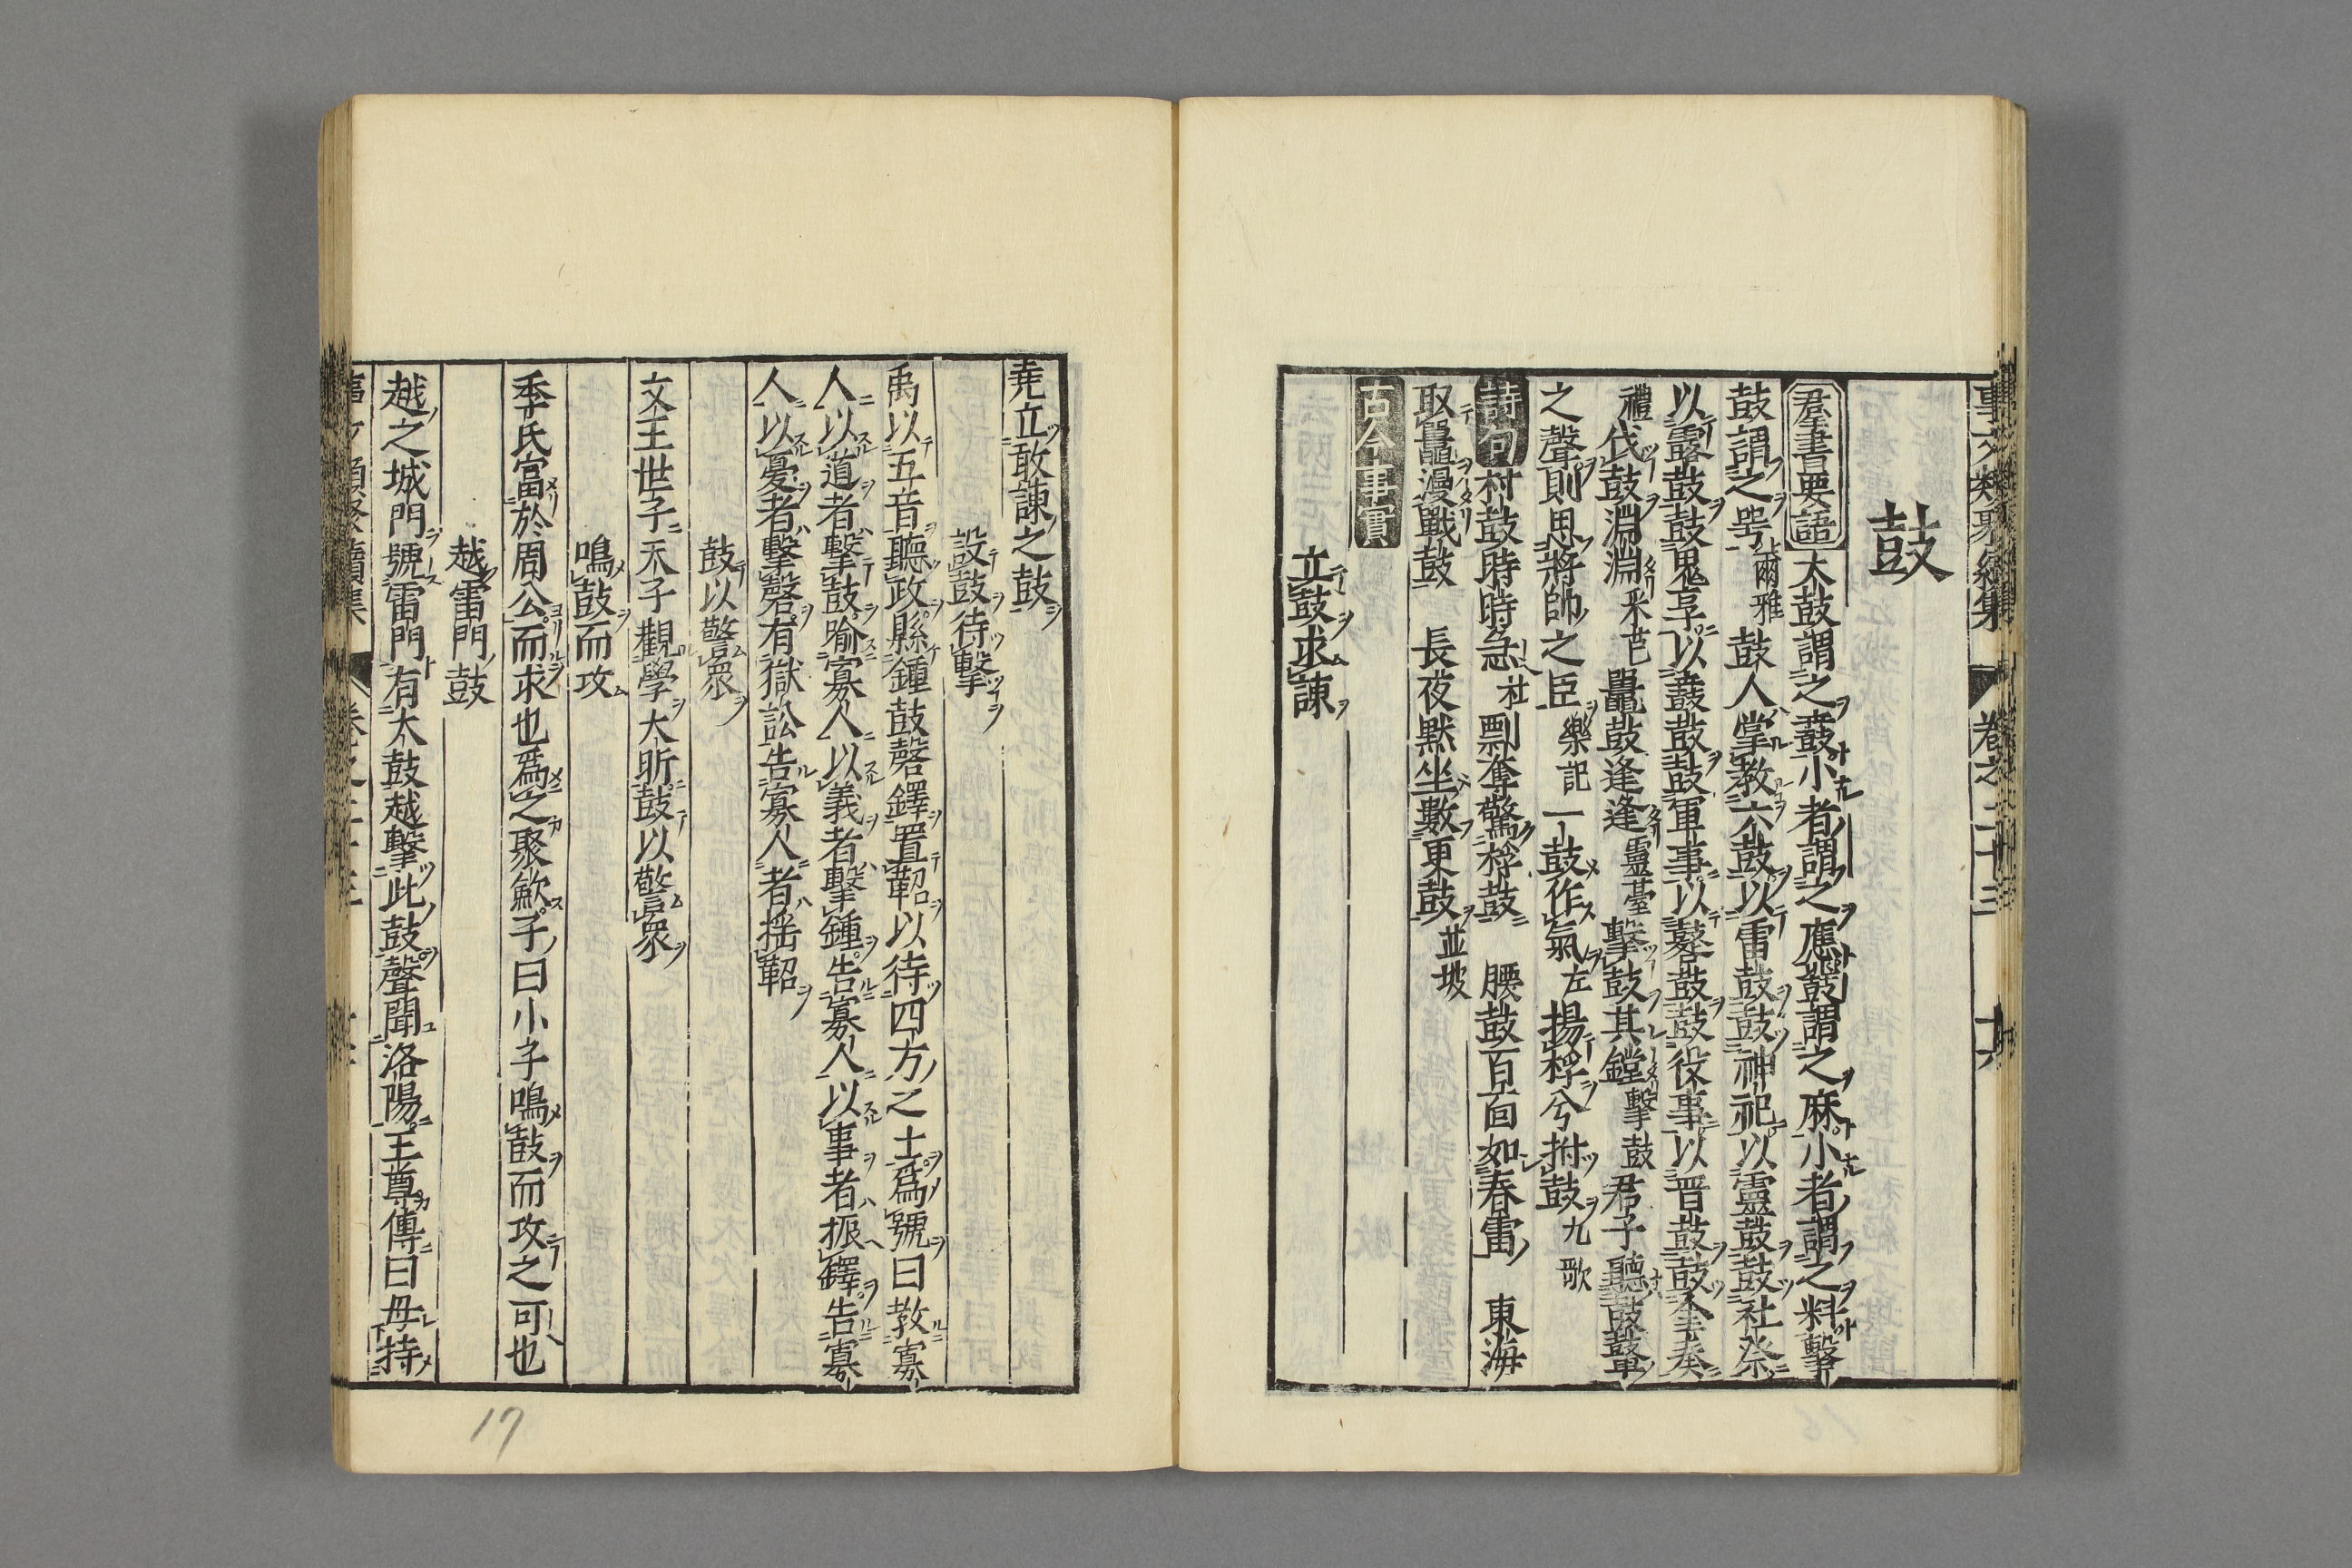 鼓
群書要語大鼓謂之鼖小者謂之應鼛謂之麻小者謂之料擊
鼓謂之咢爾雅 鼓人掌教六鼓以雷鼓鼓神祀以靈鼓鼓社祭
以露鼓鼓鬼享以鼖鼓鼓軍事以鼛鼓鼓役事以晋鼓鼓金奏
禮 伐鼓淵淵采芑 鼉鼓逢逢靈臺 擊鼓其鏜擊鼓 君子聽鼓鼙
之聲則思將帥之臣樂記 一鼓作氣左 揚桴兮拊鼓九歌
詩句村鼓時時急杜 剽奪驚桴鼓 腰鼓百面如春雷 東海
取鼉漫戰鼓 長夜黙坐數更鼓並坡
古今事實
立鼓求諫
堯立敢諫之鼓
設鼓待擊
禹以五音聽政縣鍾鼓磬鐸置鞀以待四方之士爲號曰敎寡
人以道者擊鼓喩寡人以義者擊鍾告寡人以事者振鐸告寡
人以憂者擊磬有獄訟告寡人者揺鞀
鼓以警衆
文王世子天子觀學大昕鼓以警衆
鳴鼓而攻
季氏富於周公而求也爲之聚歛子曰小子鳴鼓而攻之可也
越雷門鼓
越之城門號雷門有大鼓越擊此鼓聲聞洛陽王尊傳曰毋持